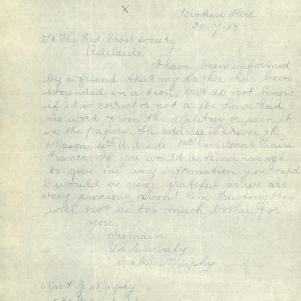 Broken Hill
To The Red Cross Society
Adelaide
I have been informed
by a friend that my father has been
wounded in action, but do not know
if it is correct or not as we have had
no word from the Military or seen it
in the papers. His address is Driver
Mason, 4th A.A.S.C. 1st Divisional Train
France. If you would be kind enough
to give me any information you could
I would be very grateful as we are
very anxious about him trusting this
will not be too much bother for
you
I remain
Yrs Sincerely
Murphy
Mrs J. Murphy